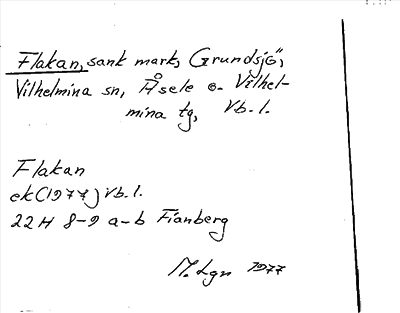 Flakan, sank mark, Grundsjö,
Vilhelmina sn, Åsele o. Vilhel-
mina tg, Vb. l.
Flakan
ek (1977) Vb. l.
22H 8-9 a-b Fianberg
M. Lgn 1977